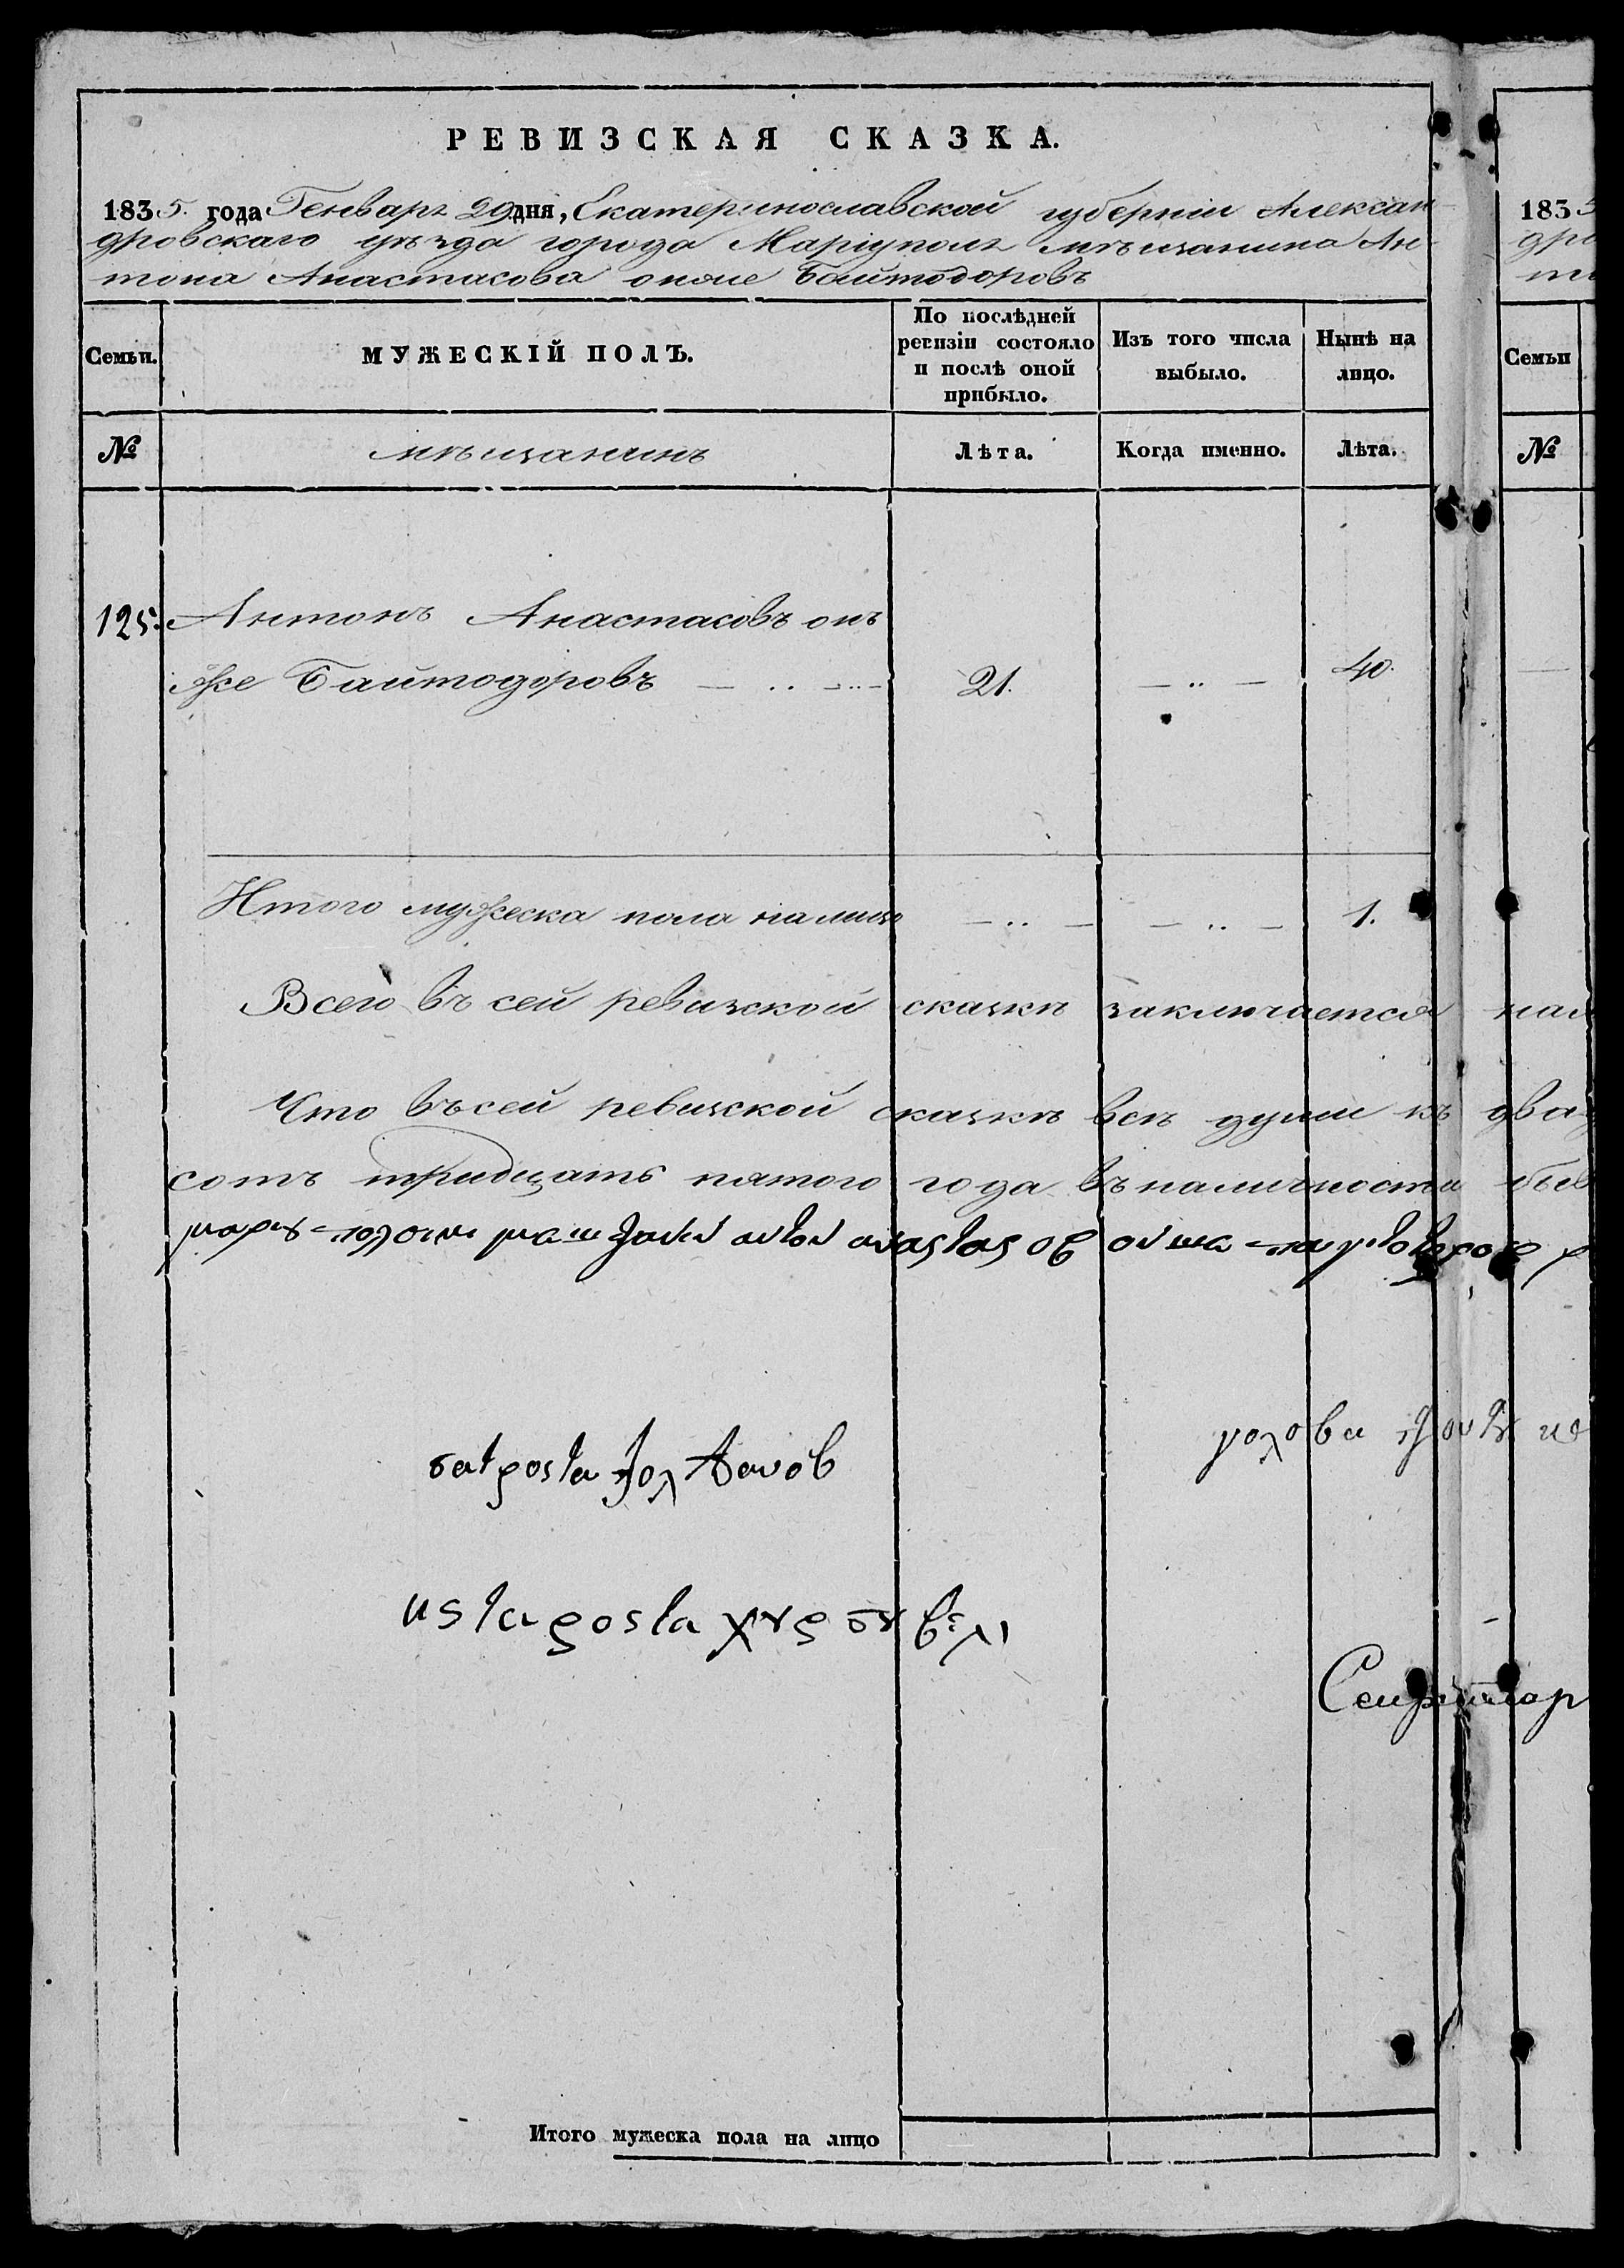 РЕВИЗСКАЯ СКАЗКА.
1835. года Генваря 29 дня, Екатеринославской губерніи Алексан
дровскаго уѣзда города Маріуполя мѣщанина Ан-
тона Анастасова онже Байтодоровъ
Семьи.
МУЖЕСКІЙ ПОЛЪ.
По послѣдней ревизіи состояло и послѣ оной прибыло.
Изъ того числа выбыло.
Нынѣ на лицо.
№
мѣщанинъ
Лѣта.
Когда именно.
Лѣта.
125. Антонъ Анастасовъ онъ
же Байтодоровъ — .. — 21. — .. — 40.
Итого мужеска пола налицо — .. — — .. — 1.
Всего въ сей ревизской сказкѣ заключается нал
Что въ сей ревизской сказкѣ всѣ души къ два
сотъ тридцать пятого года въ наличности был
αντον αναςτας οβ
γολοβα
ραтροςτα
ηςταροςτα χυρ
Секретар
Итого мужеска пола на лицо
183
Семьи
№